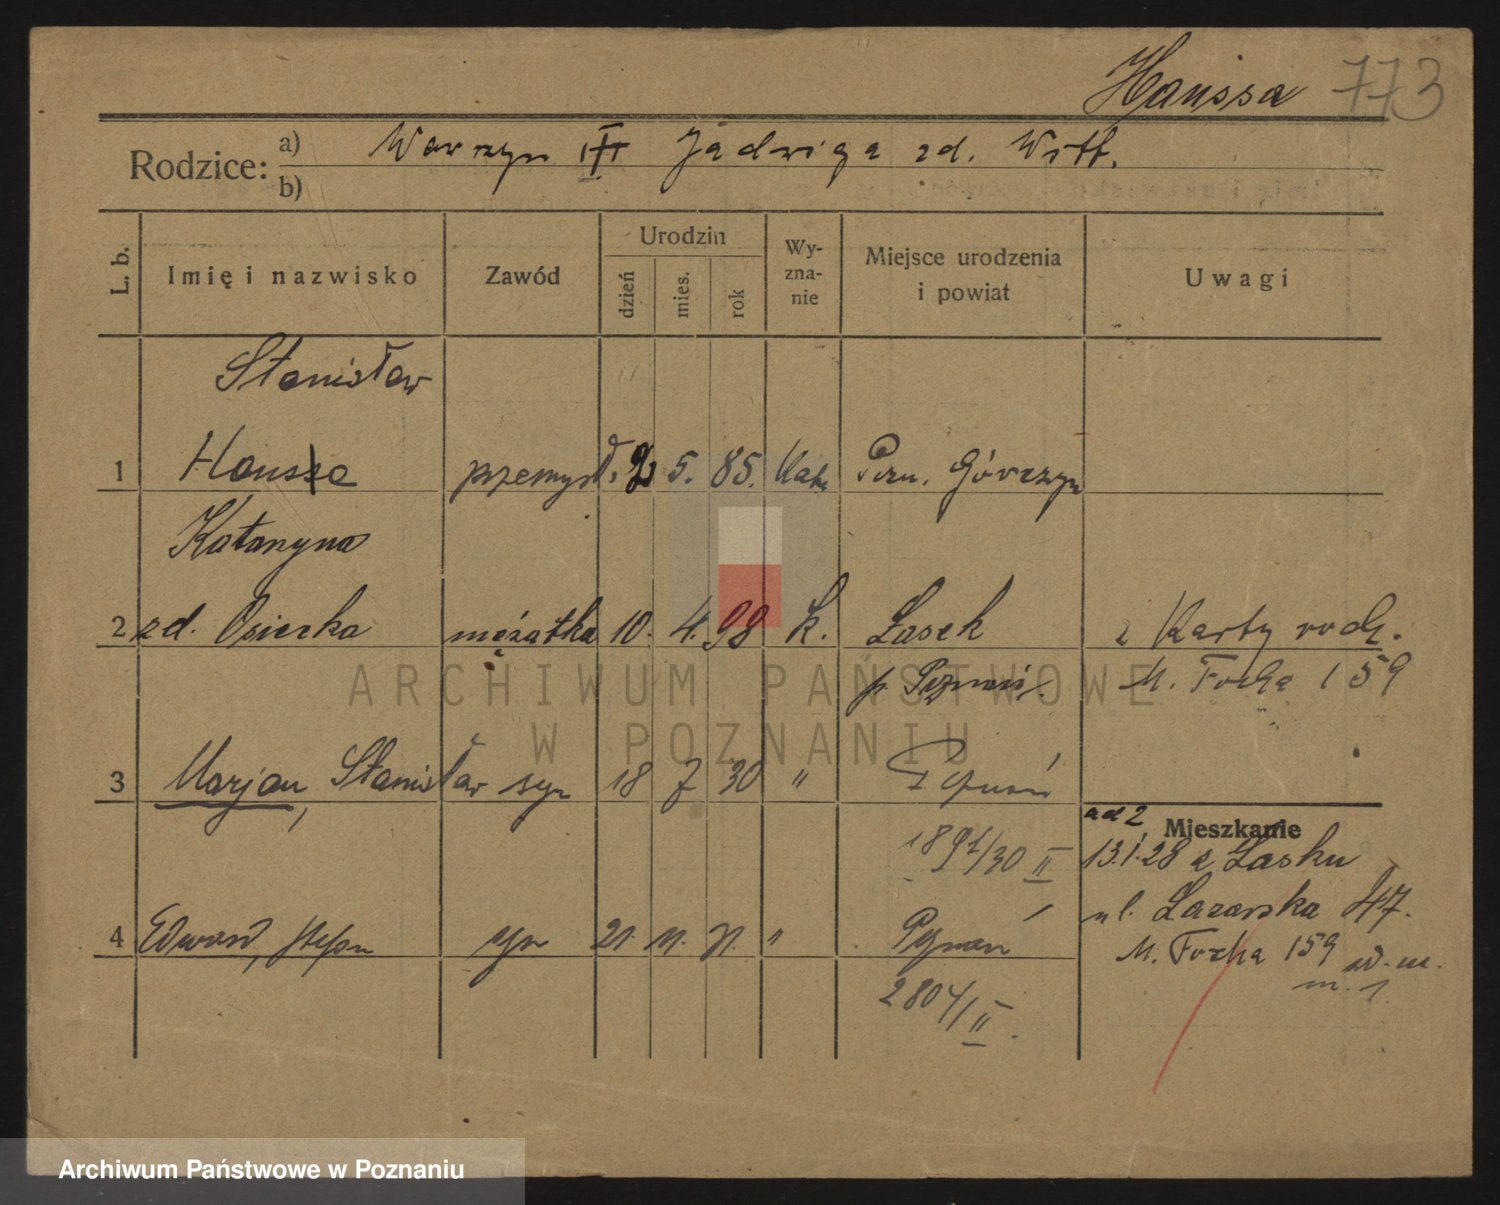 Haussa 773
Rodzice: a) Wawrzyn Jadwiga zd. Witt.
b)
L. b.
Imię i nazwisko
Zawód
Urodzin
dzień
mies.
rok
Wy-
zna-
nie
Miejsce urodzenia
i powiat
Uwagi
Stanisław
1 Haussa przemysł. 2 5. 85. Kath Pozn. Górczyn
Katarzyna
2 zd. Osiecka mężatka 10. 4. 98 k. Lasek z Karty rodz.
p. Poznań. M. Focha 159
3 Marjan, Stanisław syn 18 7 30 " Poznań
1891/30 II
ad 2
Mieszkanie
13.1.28 z Lasku
ul. Łazarska 47.
4 Edward, Stefan syn 21. 11. 31. " Poznań
M. Focha 159
m. 1
2804/II
ARCHIWUM PAŃSTWOWE
W POZNANIU
Archiwum Państwowe w Poznaniu